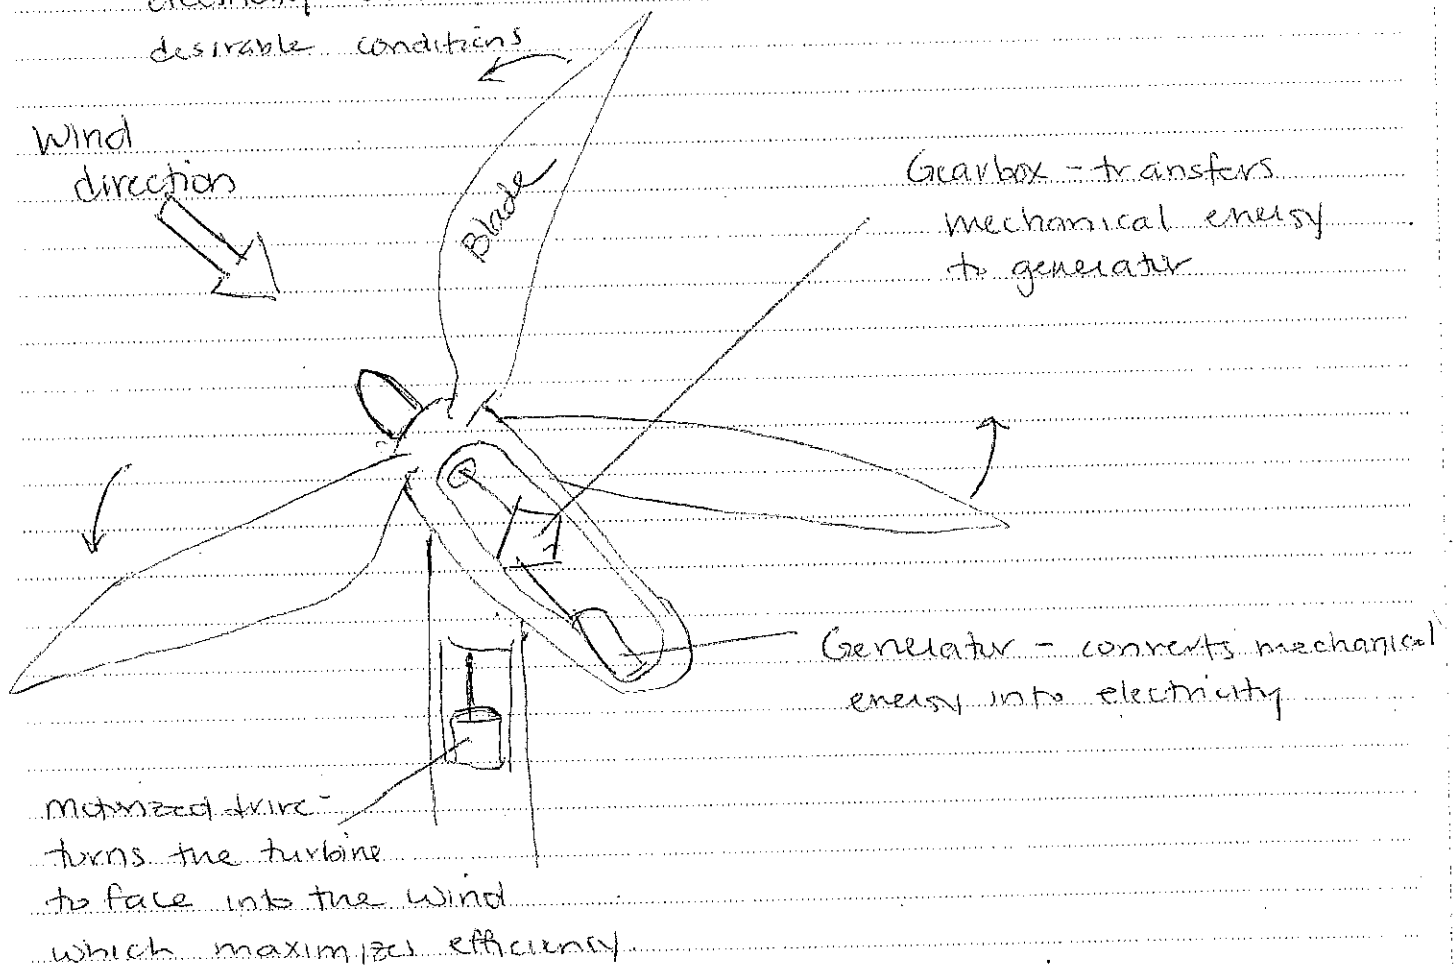 desirable conditions
Wind
direction
Blade
Gearbox - transfers
mechanical energy
to generator
Generator - converts mechanical
energy into electricity
turns the turbine
to face into the wind
which maximizes efficiency.